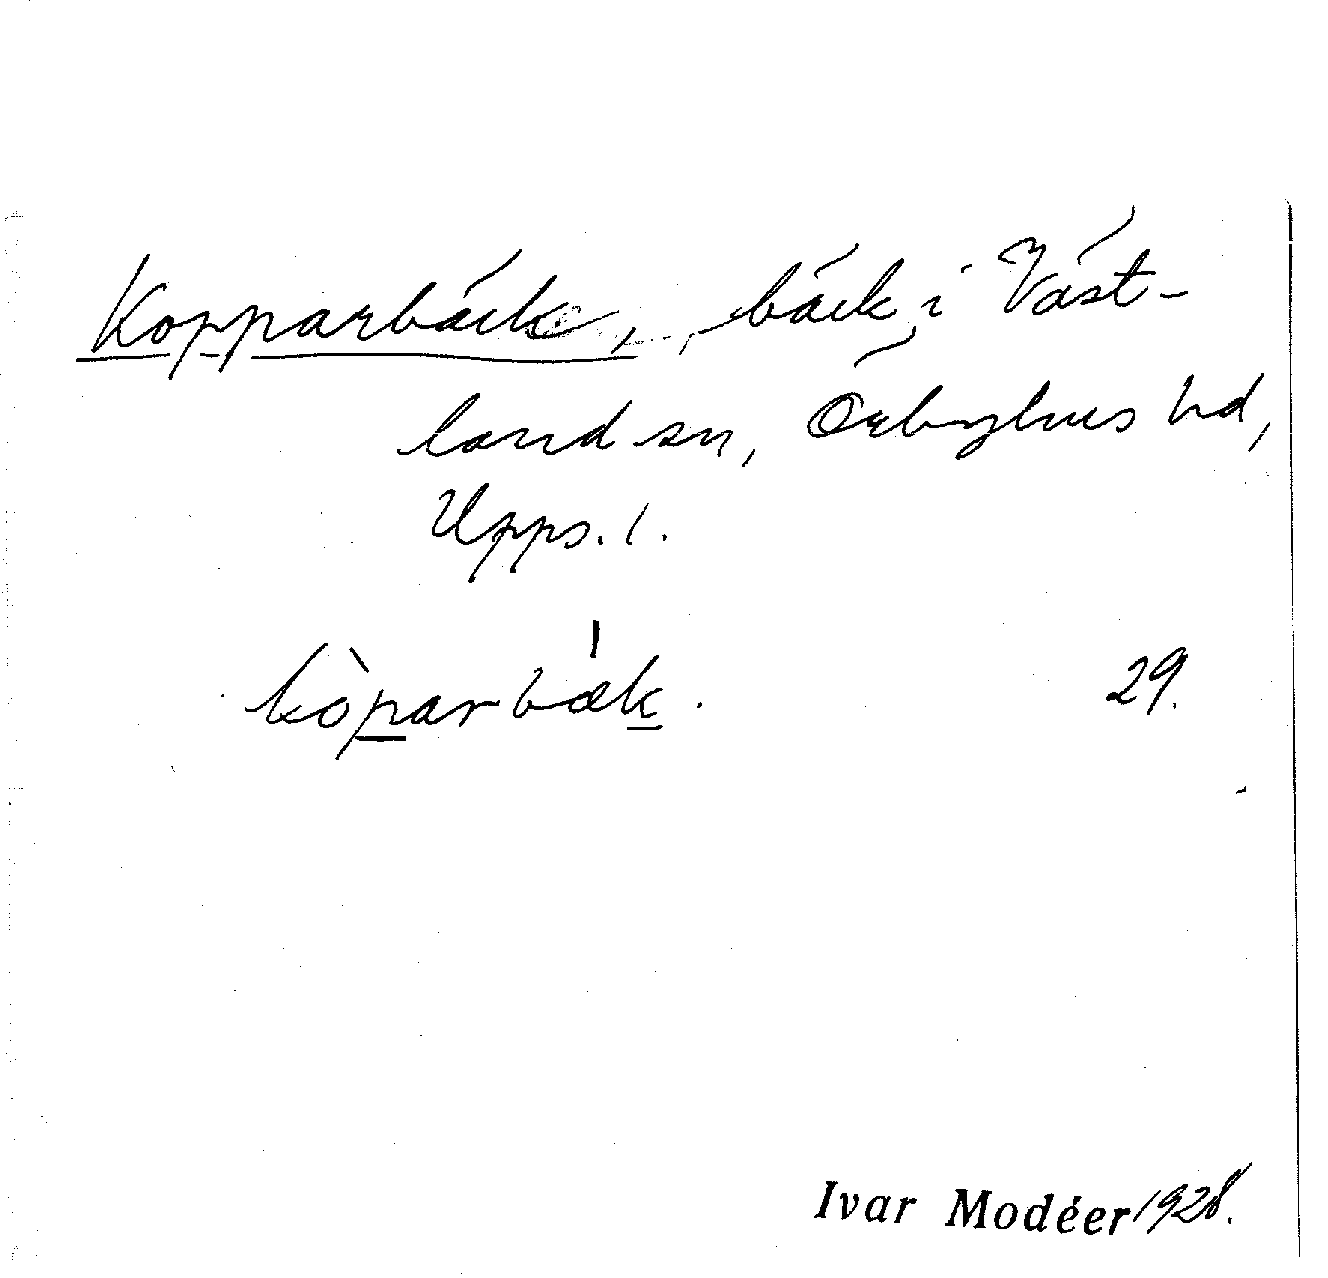 Kopparbäck, bäck i Väst-
land sn, Örbyhus hd,
Upps. l.
kòparbæ̍k. 29.
Ivar Modéer 1928.